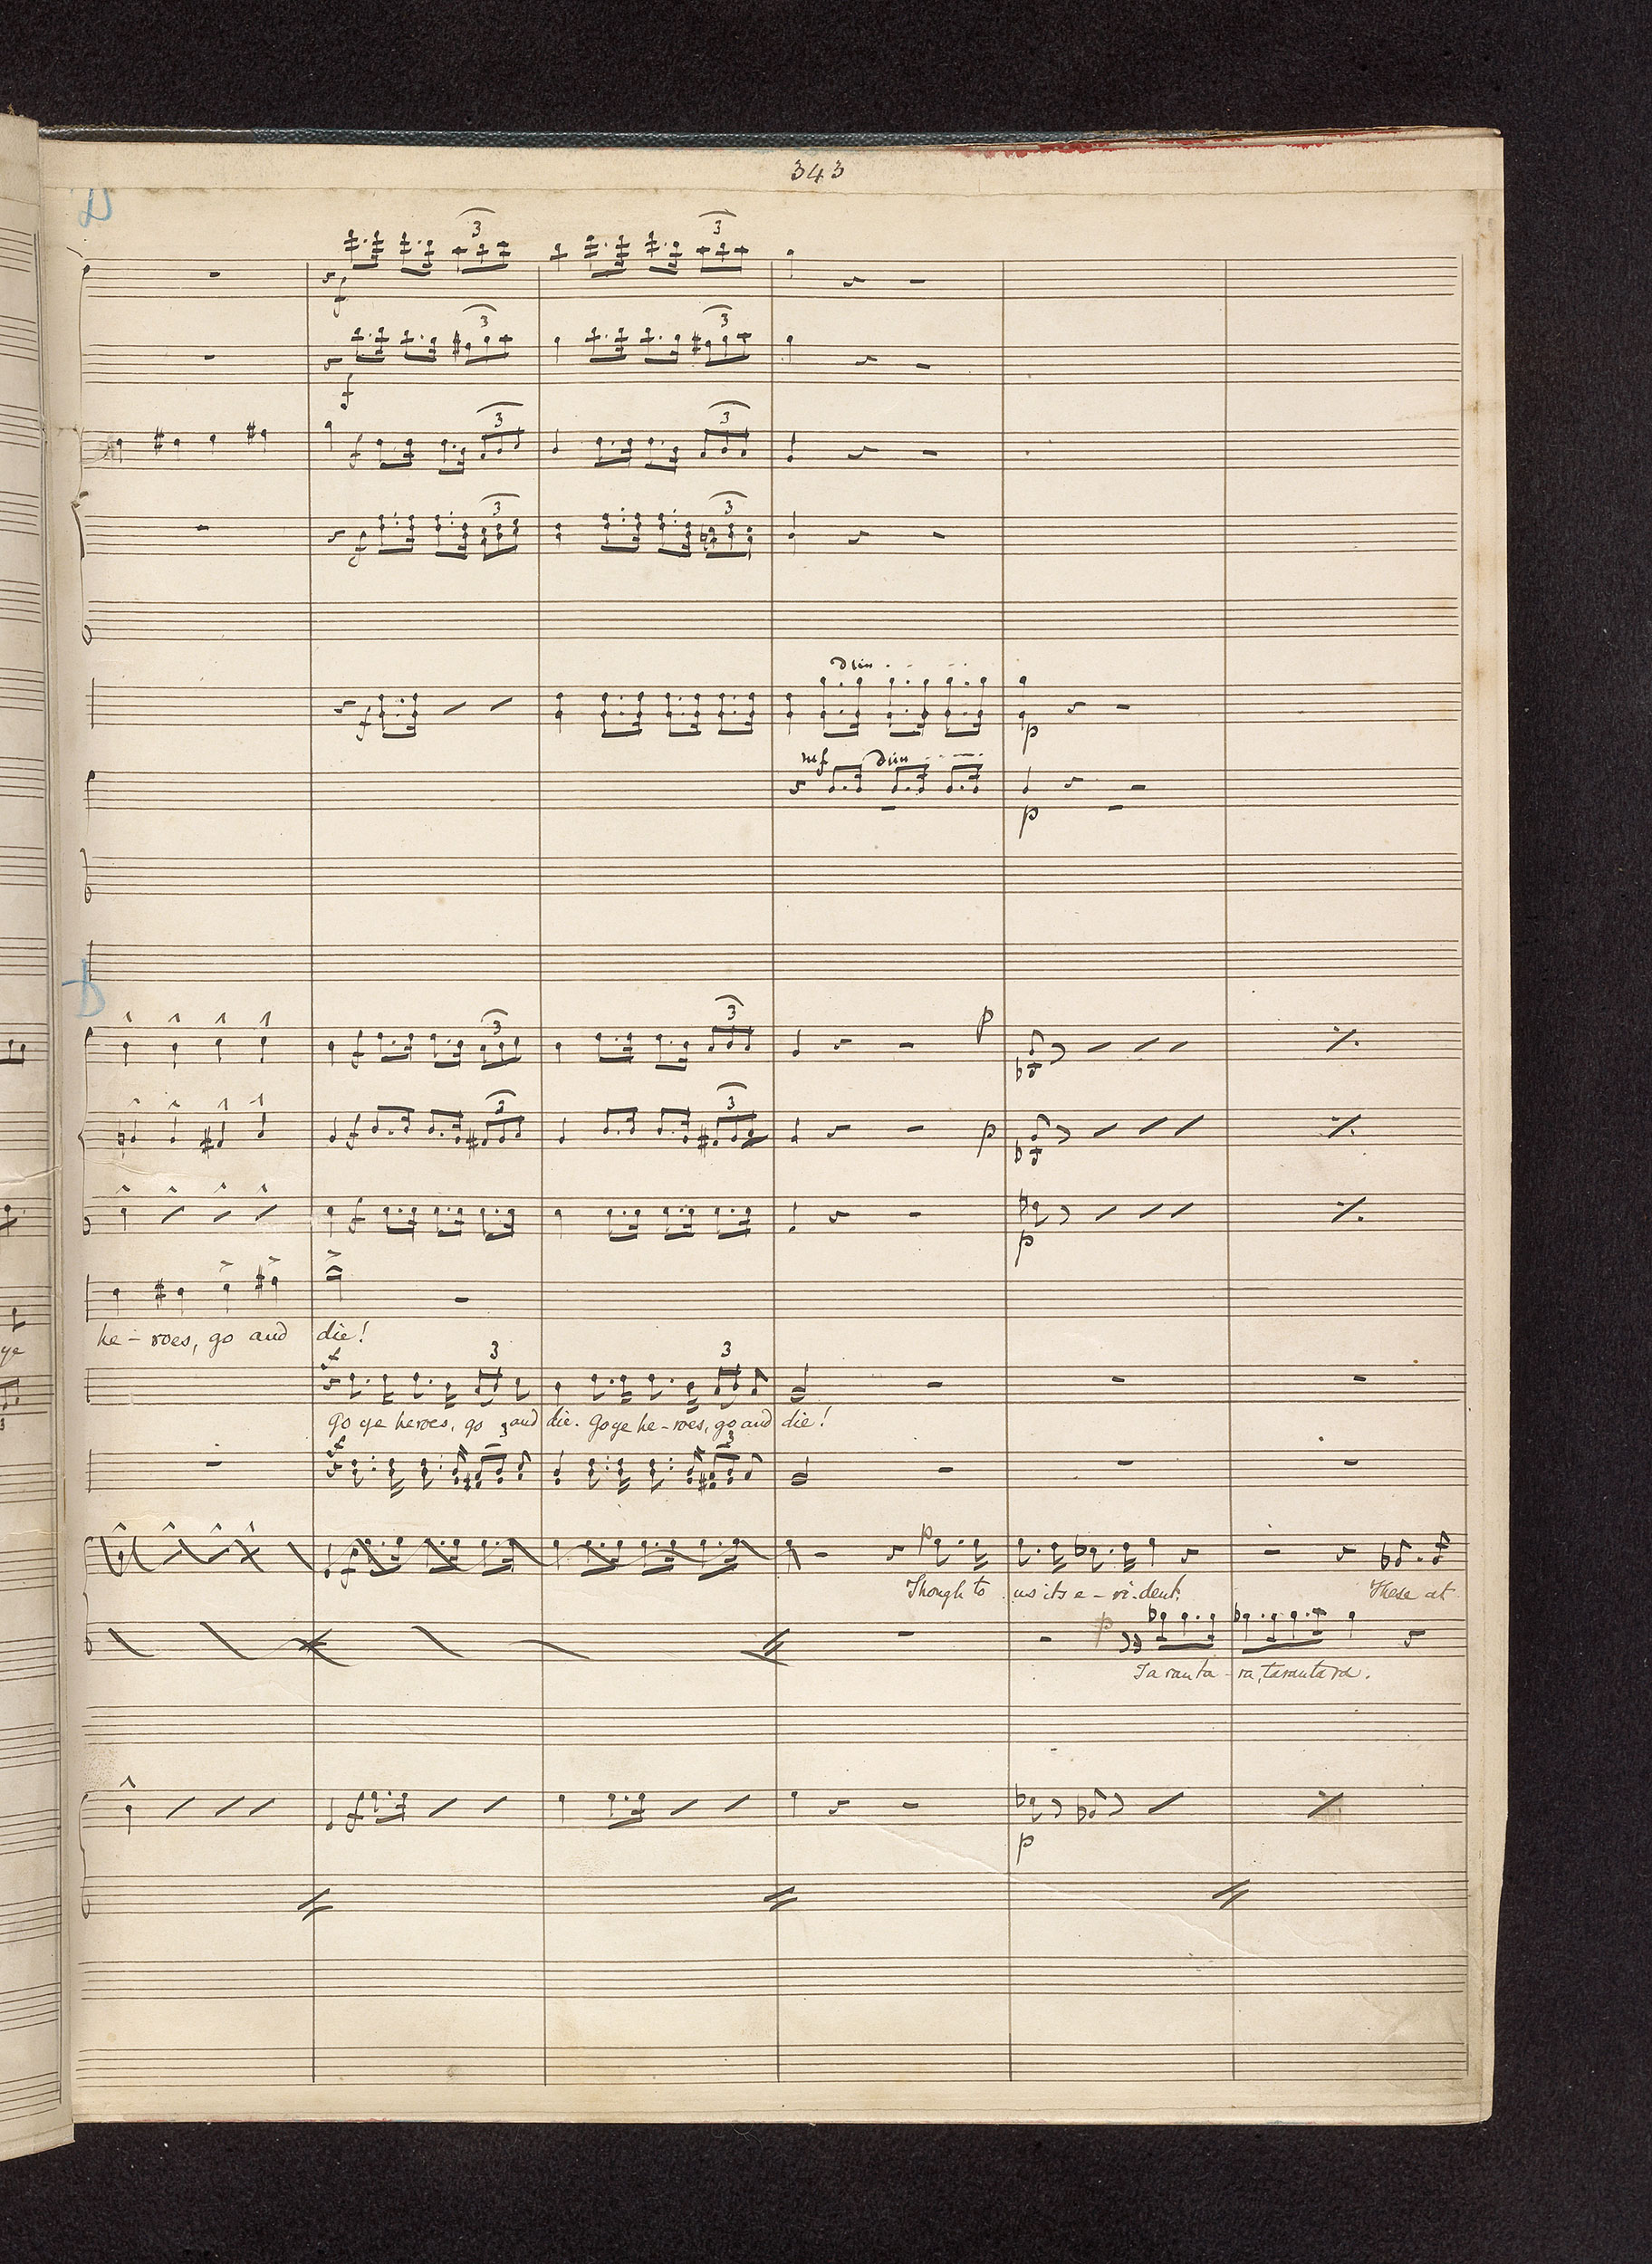 343
D
3 3
f
3 3
f
3 3
f
3 3
f
dim
f p
mf dim
p
D
3 3
f p
3 3
f p
f p
he - roes, go and die!
f 3 3
go ye heroes, go and die. Go ye he - roes, go and die!
f 3 3
f p
Though to us its e - vi - dent, These at
p
Ta ran ta - ra, tarantara.
f p